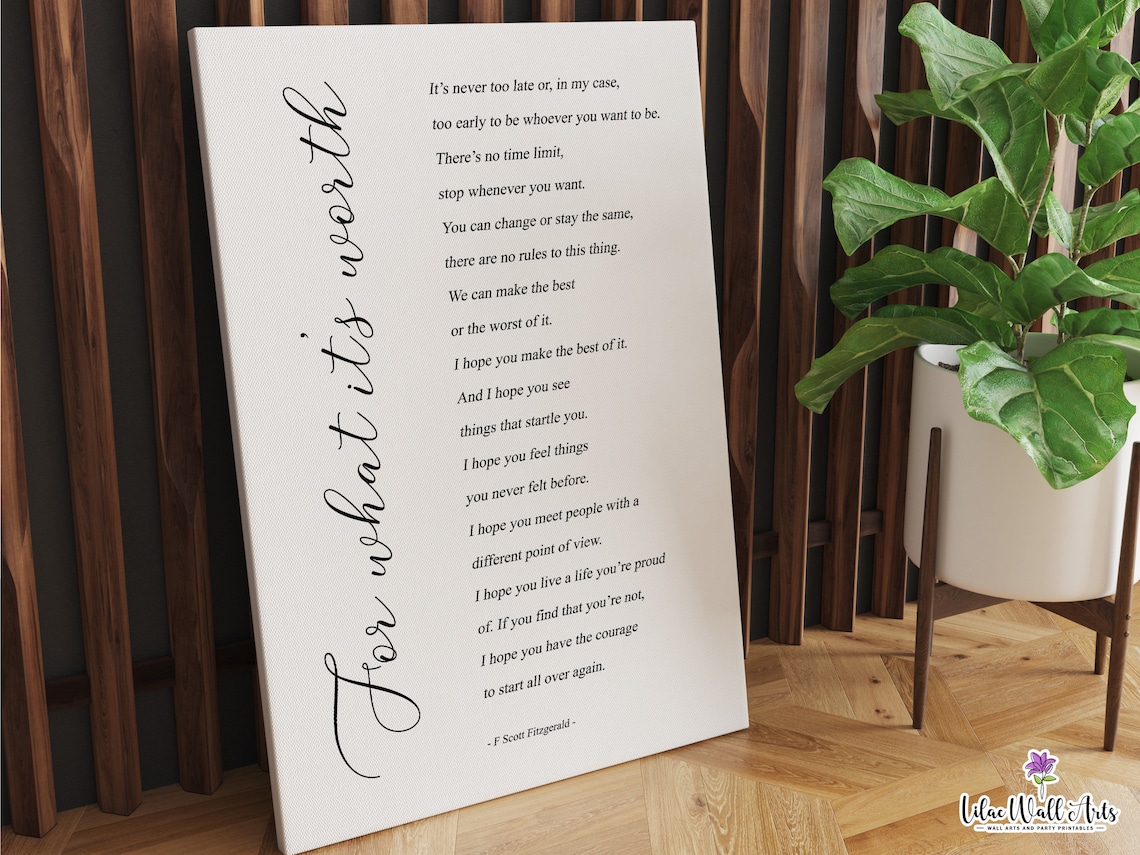 For what it's worth
It's never too late or, in my case,
too early to be whoever you want to be.
There's no time limit,
stop whenever you want.
You can change or stay the same,
there are no rules to this thing.
We can make the best
or the worst of it.
I hope you make the best of it.
And I hope you see
things that startle you.
I hope you feel things
you never felt before.
I hope you meet people with a
different point of view.
I hope you live a life you're proud
of. If you find that you're not,
I hope you have the courage
to start all over again.
- F Scott Fitzgerald -
Lilac Wall Arts
WALL ARTS AND PARTY PRINTABLES